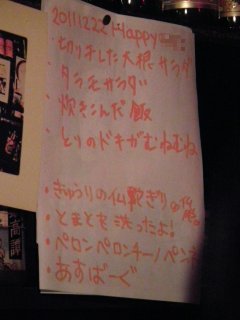 20111222 Happy
・切り干した大根サラダ
・タラモサラダ
・炊きこんだ飯
・とりのドキがむねむね
・きゅうりの仏
・とまとを洗ったよ!
・ペロンペロンチーノペンネ
・あすぱーぐ